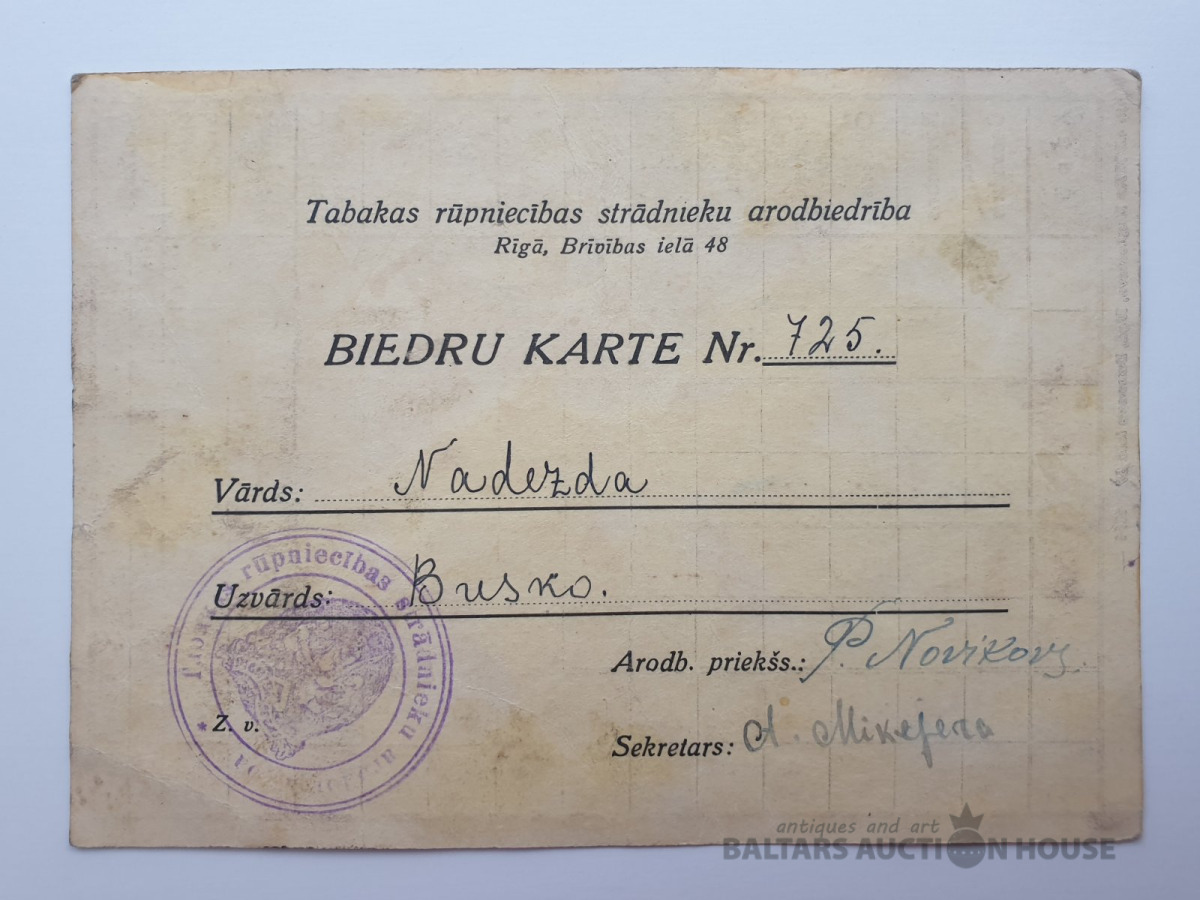 Tabakas rūpniecības strādnieku arodbiedrība
Rīgā, Brīvības ielā 48
BIEDRU KARTE Nr. 725.
Vārds: Nadezda
Uzvārds: Busko.
rūpniecības strādnieku
Arodb. priekšs.: P. Novikovs
Z. v.
Sekretars: A.
antiques and art
BALTARS AUCTION HOUSE